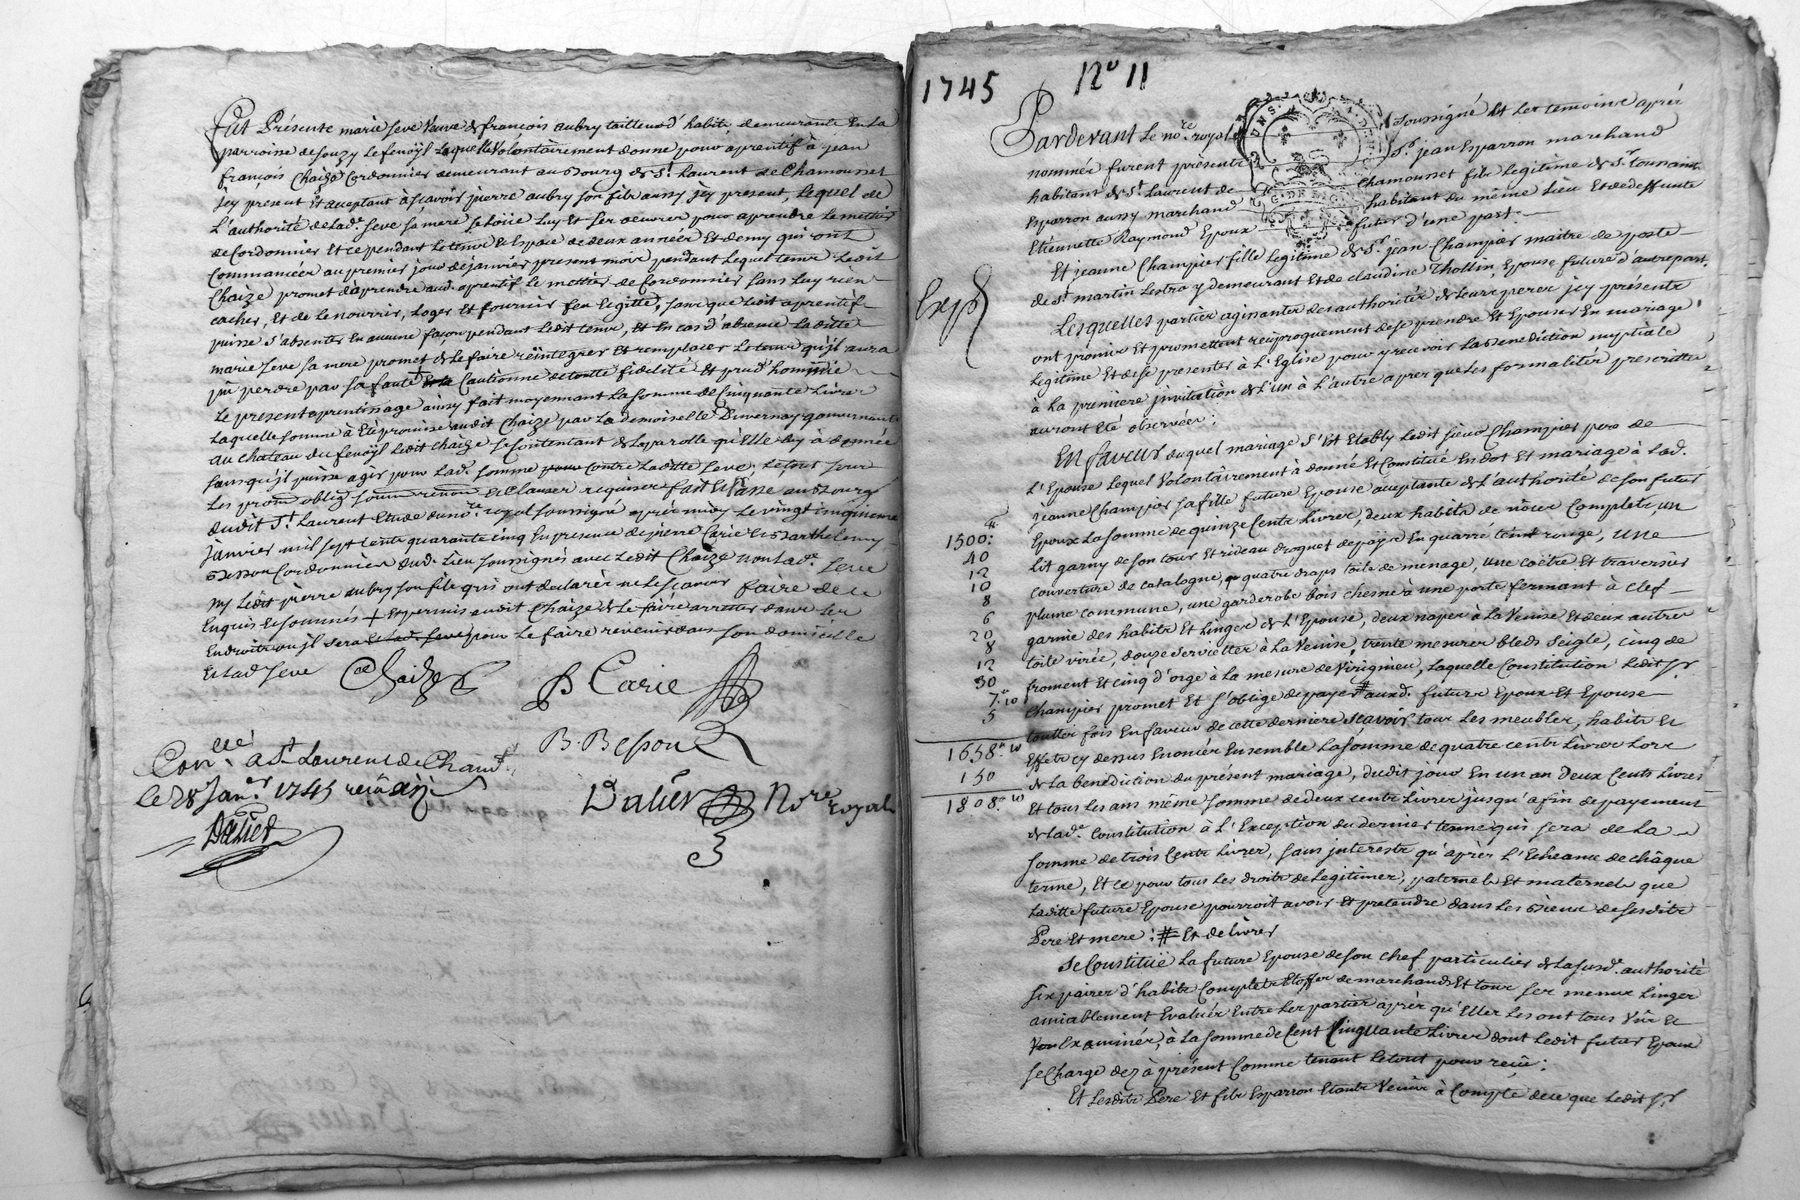 Fut Présente marie seve veuve de françois aubry tailleur d'habits demeurante en la
parroisse de souzy Le fenoÿl Laquelle volontairement donne pour aprentif à jean
françois Chaize Cordonnier demeurant au Bourg de St. Laurent de Chamousset
jcy present et aceptant àsçavoir pierre aubry son fils aussy jcy present, Lequel de
L'authorité de Lad. seve sa mere se Loüe Luy et ses oeuvres pour aprendre Le mettier
de Cordonnier et ce pendant Le tems et Espace de deux années et demy qui ont
Commancées au premier jour de janvier present mois pendant Lequel tems Ledit
Chaize promet d'àprendre aud. aprentif Le mettier de Cordonnier sans Luy rien
cacher, et de Le nourrir, Loger et fournir feu et gitte, sans que Ledit aprentif
puisse s'absenter en aucune façon pendant Ledit tems, et En cas d'absence Laditte
marie seve sa mere promet de Le faire reintegrer et remplacer Le tems qu'jl aura
pû perdre par sa faute Cautionne de toutte fidelité et prud'hommie
Le present aprentissage ainsy fait moyennant La somme de Cinquante Livres
Laquelle somme à Eté promise audit Chaize par La demoiselle Duvernay gouvernante
au chateau du fenoÿl Ledit Chaize se Contentant de La parolle qu'Elle Luy à donnée
sans qu'jl puisse agir pour Lad. somme pour contre Laditte seve, Le tout sous
Les prom. oblig. soum. renon. et Clauses requises fait et Passé au Bourg
dudit St. Laurent Etude du nore. royal soussigné après midy Le vingt cinquieme
janvier mil sept cents quarante cinq En presence de pierre Carie et Barthelemy
Besson Cordonnier dud. Lieu soussignés avec Ledit Chaize non Lad. seve
ny Ledit pierre aubry son fils qui ont declarés ne Le sçavoir faire de ce
Enquis et sommés + Et permis audit Chaize de Le faire arretter dans Les
Endroits ou jl sera et lad. seve pour Le faire revenir dans son domicille
Et Lad. seve
Chaize
P Carie
B. Besson
Con.llé à St Laurent de Cham.t
Le 28 Janer. 1745
Dalier
Dalier Nore royal
1745 No 11
Pardevant Le nore. royal soussigné Et Les temoins après
nommés furent presents Sr. jean Esparron marchand
habitant de St. Laurent de Chamousset fils Legitime de Sr.
Esparron aussy marchand habitant du même Lieu Et de deffunte
Etiennette Raymond Epoux futur d'une part
Et jeanne Champier fille Legitime de Sr. jean Champier maitre de poste
de St martin Lestra y demeurant Et de claudine Thollin, Epouse future d'autre part.
Exp.
Lesquelles parties agissantes des authorités de Leurs peres jcy présents
ont promis Et promettent reciproquement de se prendre Et Epouser En mariage
Legitime Et de se presenter à L'Eglise pour y recevoir La Benediction nuptiale
à La premiere jnvitation de L'un à L'autre apres que Les formalités prescrittes
auront Eté observées :
En faveur duquel mariage s'est Etably Ledit sieur Champier pere de
L'Epouse Lequel volontairement à donné Et Constitué En dot Et mariage à Lad.
jeanne Champier sa fille future Epouse aceptante de L'authorité de son futur
Epoux La somme de quinze Cents Livres, deux habits de nôces Complets, un
Lit garny de son tour Et rideau droguet de pays En quarré teint rouge, une
couverture de catalogne, quatre draps toile de menage, une coëtre Et traversier
plume commune, une garderobe bois chesne à une porte fermant à clef
garnie des habits Et Linges de L'Epouse, deux napes à La Venise Et deux autres
toile virée, douze serviettes à La Venise, trente mesures bleds seigle, cinq de
froment Et cinq d'orge à La mesure de Virignieu, Laquelle Constitution Ledit Sr.
Champier promet Et s'oblige de payer # auxd. futurs Epoux Et Epouse
touttes fois En faveur de cette derniere sçavoir tous Les meubles, habits Et
Effets cy dessus Enoncés Ensemble La somme de quatre cents Livres Lors
de La benediction du présent mariage, dudit jour En un an Deux Cents Livres
Et tous Les ans même somme de deux cents Livres jusqu'a fin de payement
de Lade. Constitution à L'Exception du dernier terme qui sera de La
somme de trois Cents Livres, sans jnterests qu'après L'Echeance de châque
terme, Et ce pour tous Les droits de Legitimes, paternels Et maternels que
Laditte future Epouse pourroit avoir Et pretendre dans Les Biens de sesdits
Pere Et mere : # Et delivrer
Se Constitüe La future Epouse de son chef particulier de La susd. authorité
six paires d'habits Complets Etoffes de marchands Et tous ses menus Linges
amiablement Evalués Entre Les parties après qu'Elles Les ont tous Vûs Et
Examinés, à La somme de Cent Cinquante Livres dont Ledit futur Epoux
se Charge dez à présent Comme tenant Le tout pour reçû :
Et Lesdits Pere Et fils Esparron Etants Venus à Compte de ce que Ledit Sr
1500:
40
12
10
8
6
20
8
12
30
7. 10
5
1658. 10
150
1808. 10